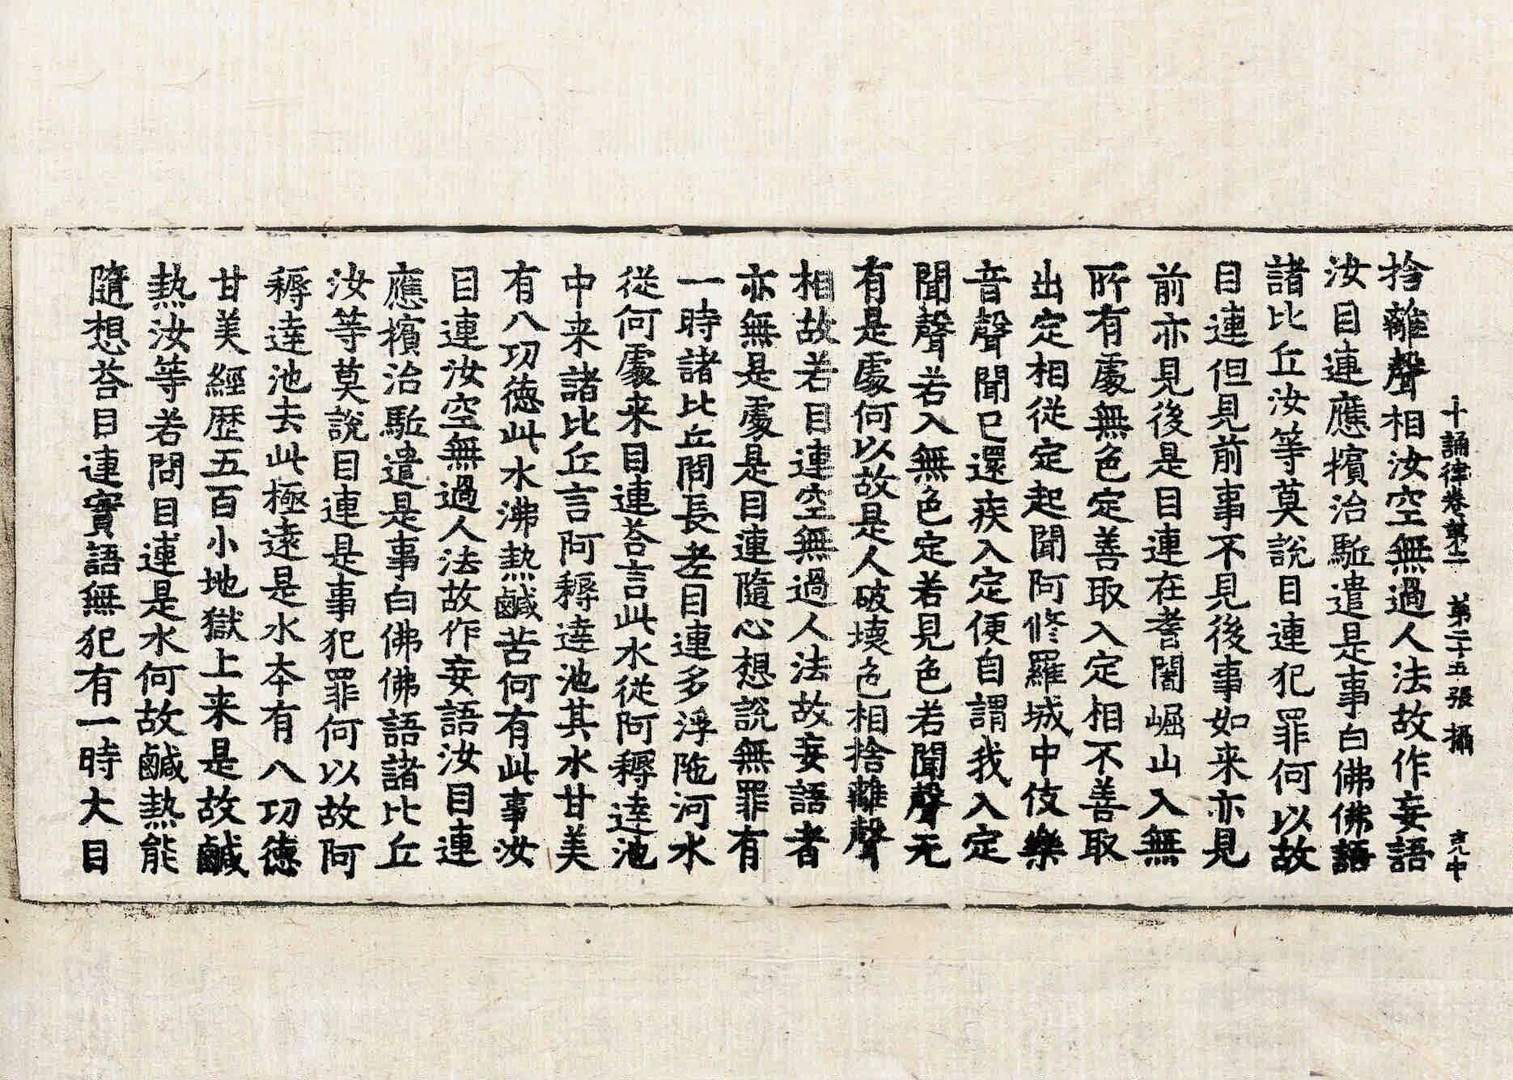 十誦律卷第二　第二十五張　攝
克中
捨離聲相汝空無過人法故作妄語
汝目連應擯治駈遣是事白佛佛語
諸比丘汝等莫說目連犯罪何以故
目連但見前事不見後事如来亦見
前亦見後是目連在耆闍崛山入無
所有處無色定善取入定相不善取
出定相從定起聞阿修羅城中伎樂
音聲聞已還疾入定便自謂我入定
聞聲若入無色定若見色若聞聲无
有是處何以故是人破壞色相捨離聲
相故若目連空無過人法故妄語者
亦無是處是目連隨心想說無罪有
一時諸比丘問長老目連多浮陁河水
從何處来目連荅言此水從阿耨達池
中来諸比丘言阿耨達池其水甘美
有八功德此水沸熱鹹苦何有此事汝
目連汝空無過人法故作妄語汝目連
應擯治駈遣是事白佛佛語諸比丘
汝等莫說目連是事犯罪何以故阿
耨達池去此極遠是水夲有八功德
甘美經歷五百小地獄上来是故鹹
熱汝等若問目連是水何故鹹熱能
隨想荅目連實語無犯有一時大目